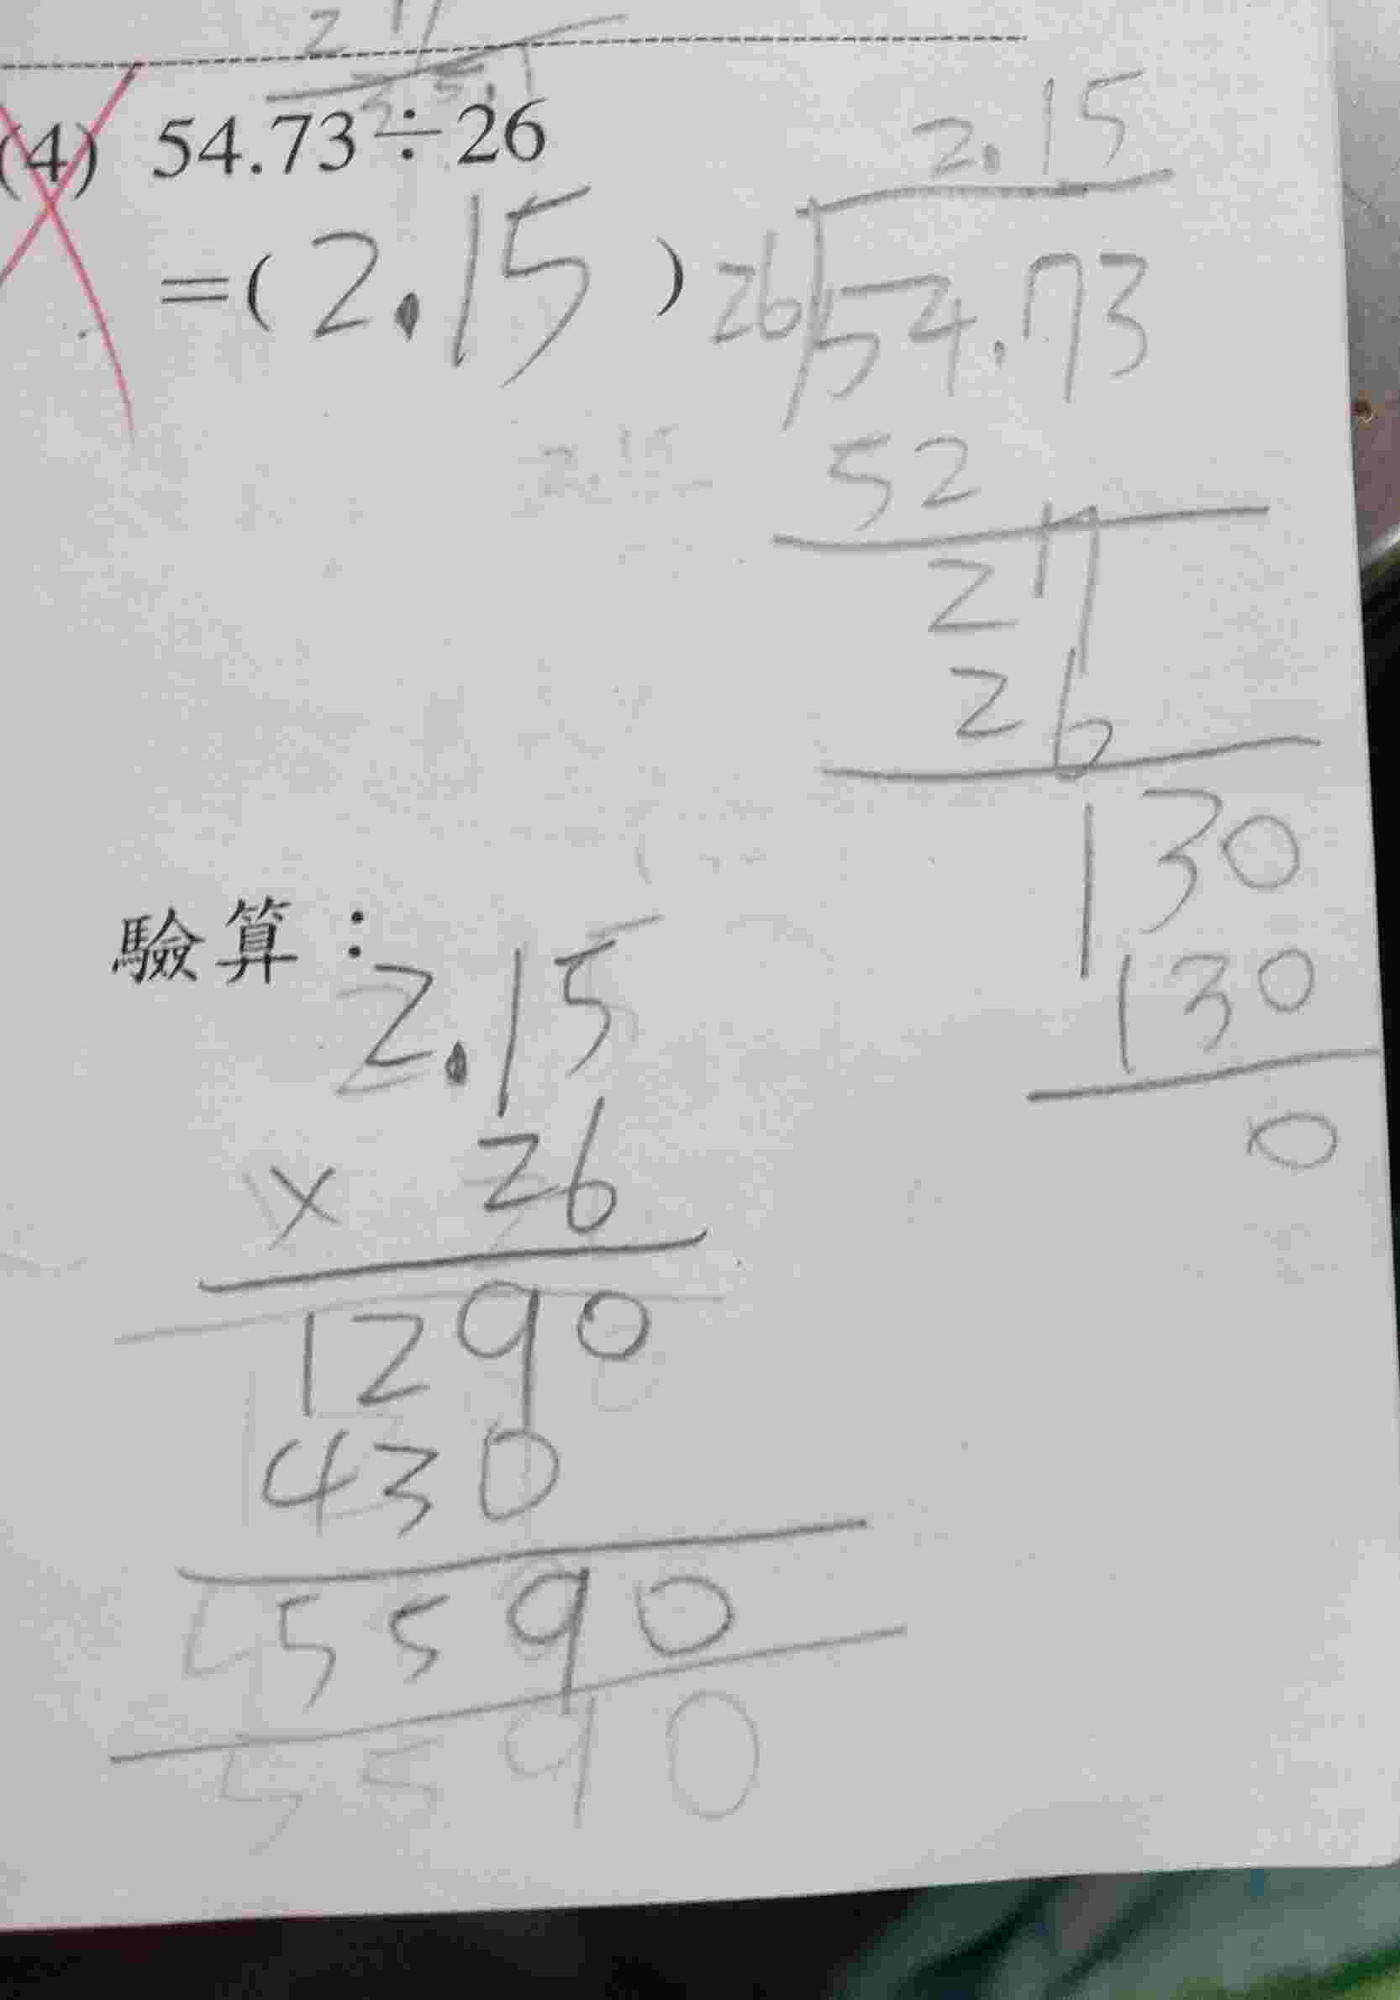 (4) 54.73÷26
=(2.15)
2.15
26)54.73
52
27
26
130
130
0
驗算：
2.15
× 26
1290
430
5590
5590